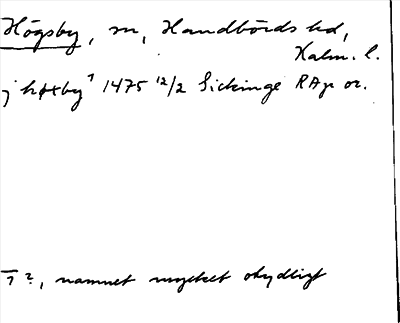 Högsby, sn, Handbörds hd,
Kalm. l.
j høxby¹ 1475 12/2 Sickinge RAp or.
1 ?, namnet mycket otydligt